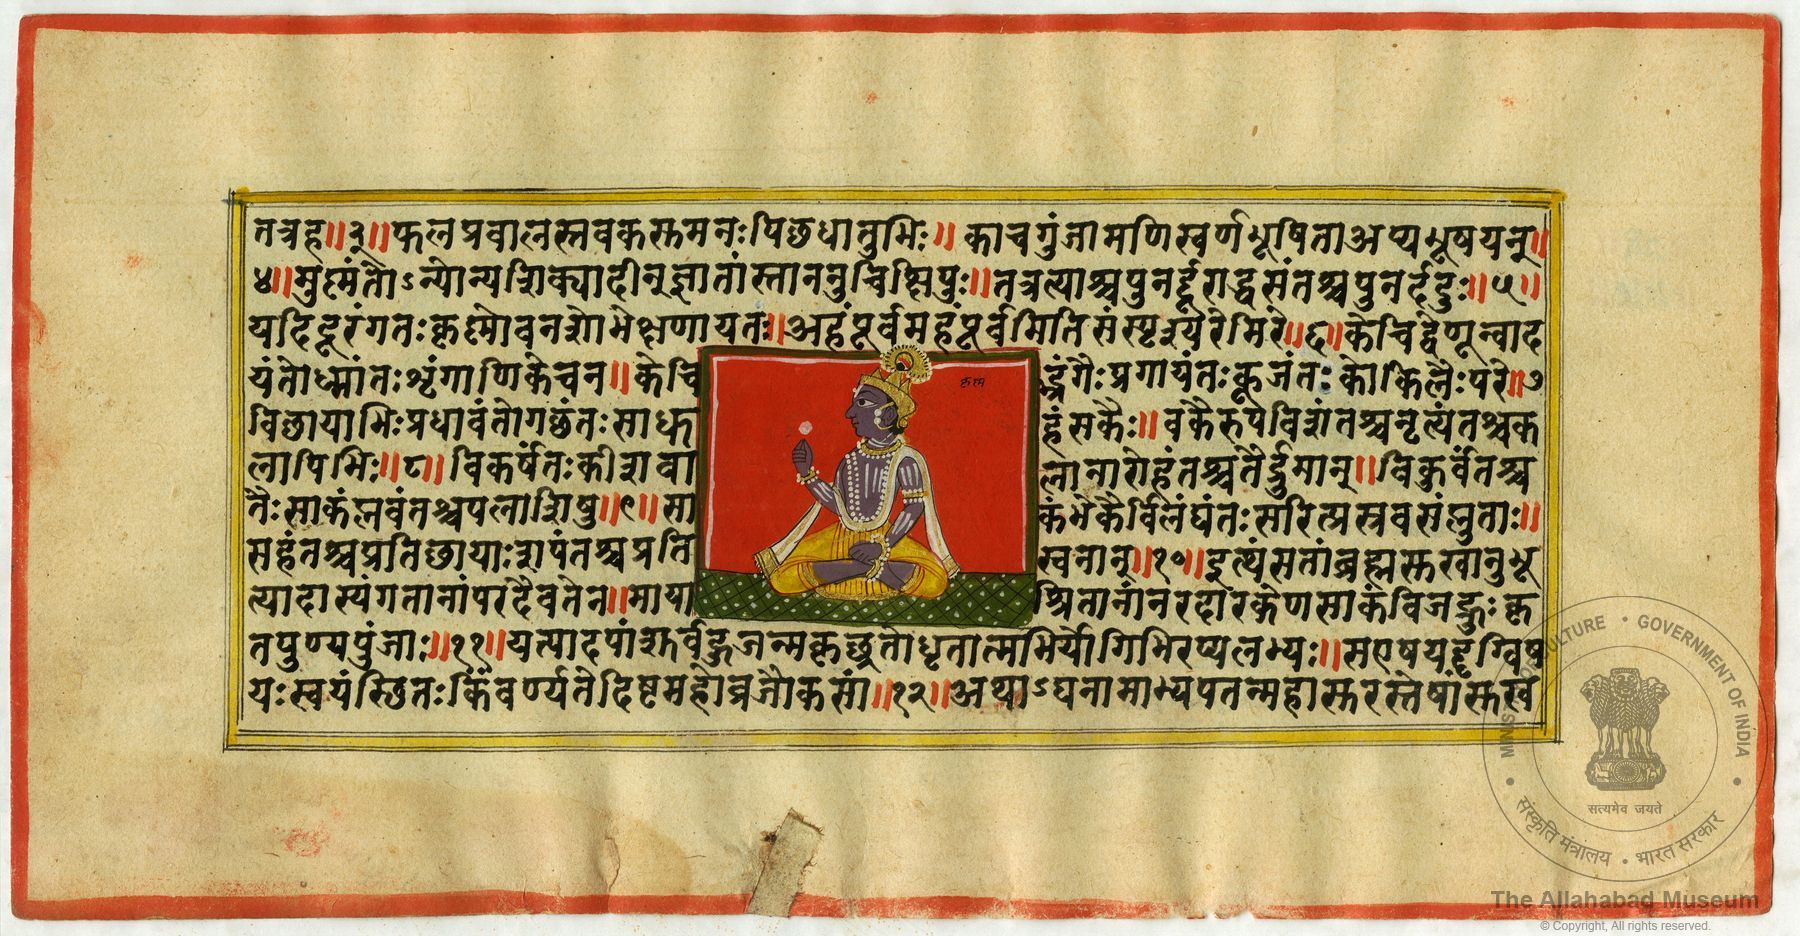 तत्रह॥३॥फलप्रवालस्तबकसुमनःपिछधातुभिः॥ काचगुंजामणिस्वर्णभूषिताअप्यभूषयन्॥
४॥मुष्णंतोऽन्योन्यशिक्यादीन्ज्ञातांस्ताननुचिक्षिपुः॥तत्रत्याश्चपुनर्दूराद्धसंतश्चपुनर्ददुः॥५॥
यदिदूरंगतःकृष्णोवनशोभेक्षणायतः॥अहंपूर्वमहंपूर्वमितिसंस्पृश्यरेमिरे॥६॥केचिद्वेणून्वाद
यंतोध्मांतःशृंगाणिकेचन॥केचि
द्भृंगैःप्रगायंतःकूजंतःकोकिलैःपरे॥७
विछायाभिःप्रधावंतोगछंतःसाधु
हंसकैः॥वकैरुपविशंतश्चनृत्यंतश्चक
लापिभिः॥८॥विकर्षंतःकीशवा
लानारोहंतश्चतैर्द्रुमान्॥विकुर्वंतश्च
तैःसाकंप्लवंतश्चपलाशिषु॥९॥सा
कंभेकैर्विलंघंतःसरित्प्रस्रवसंप्लुताः॥
सहंतश्चप्रतिछायाःशपंतश्चप्रति
स्वनान्॥१०॥इत्थंसतांब्रह्मसुखानुभू
त्यादास्यंगतानांपरदैवतेन॥माया
श्रितानांनरदारकेणसाकंविजह्रुःकृ
तपुण्यपुंजाः॥११॥यत्पादपांशुर्बहुजन्मकृछ्रतोधृतात्मभिर्योगिभिरप्यलभ्यः॥सएषयद्दृग्विष
यःस्वयंस्थितःकिंवर्ण्यतेदिष्टमहोव्रजौकसां॥१२॥अथाऽघनामाभ्यपतन्महासुरस्तेषांसुख
कृष्ण
MINISTRY OF CULTURE • GOVERNMENT OF INDIA
सत्यमेव जयते
संस्कृति मंत्रालय • भारत सरकार
The Allahabad Museum
© Copyright, All rights reserved.